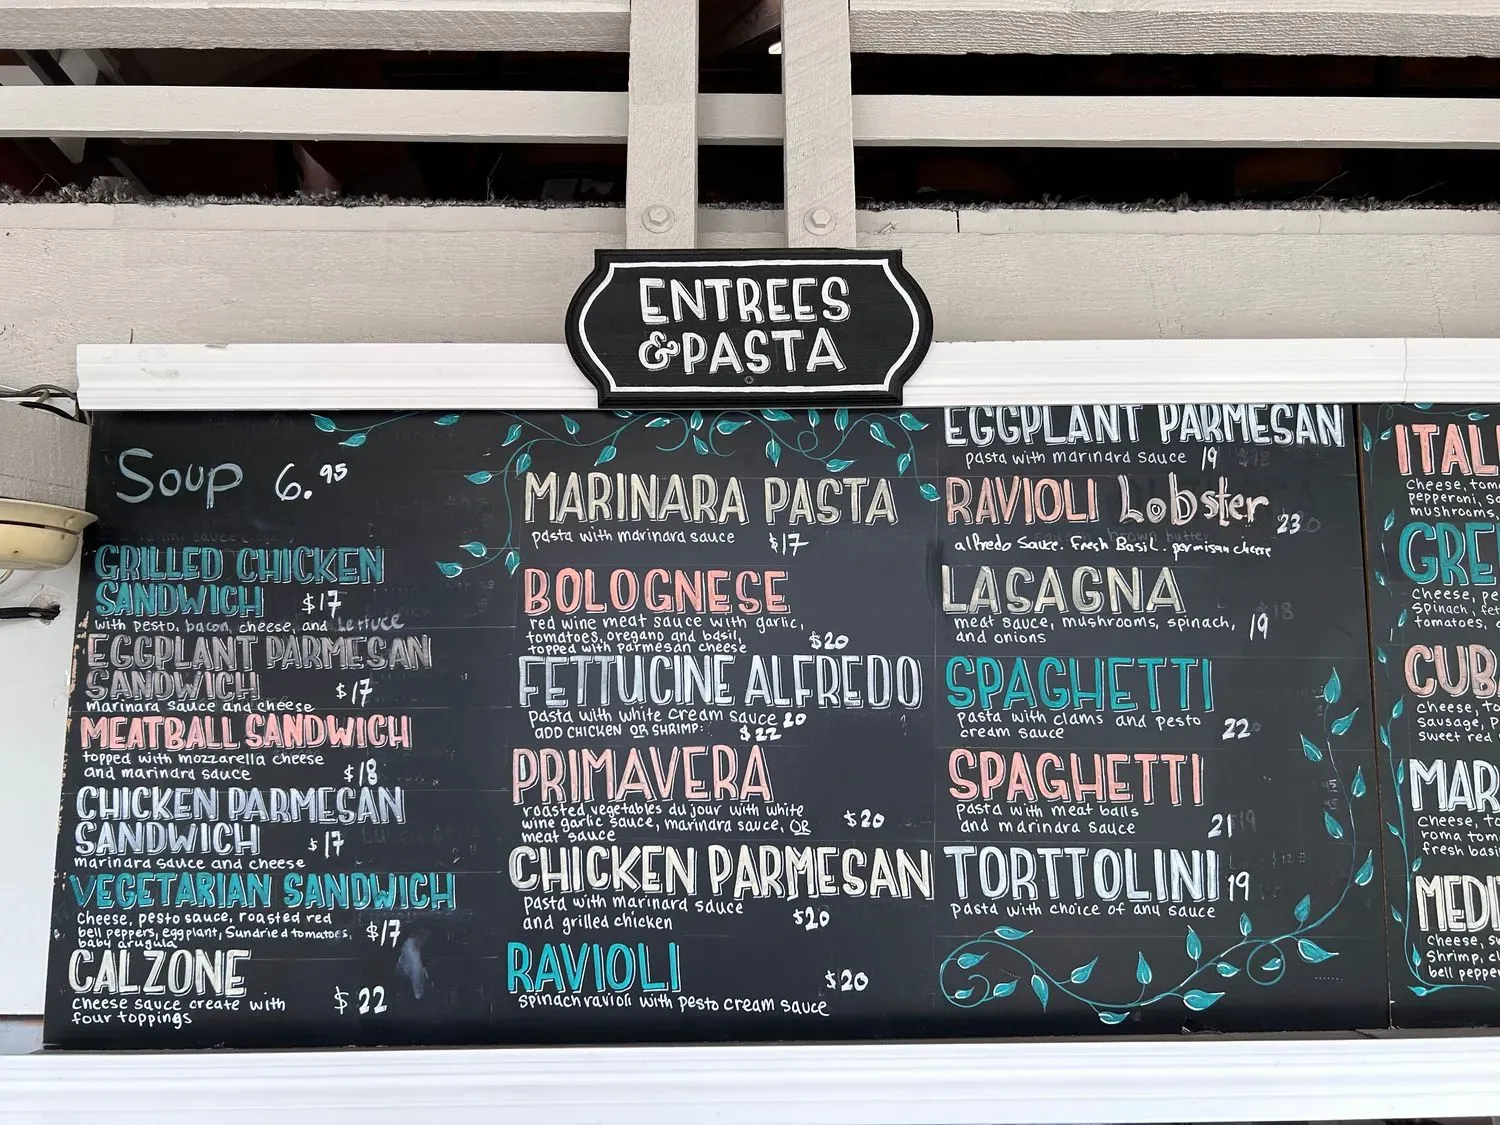 ENTREES
&PASTA
Soup 6.95
GRILLED CHICKEN
SANDWICH $17
with pesto, bacon, cheese, and Lettuce
EGGPLANT PARMESAN
SANDWICH $17
marinara sauce and cheese
MEATBALL SANDWICH
topped with mozzarella cheese
and marinara sauce $18
CHICKEN PARMESAN
SANDWICH $17
marinara sauce and cheese
VEGETARIAN SANDWICH
Cheese, pesto sauce, roasted red
bell peppers, eggplant, Sundried tomatoes, $17
baby arugula
CALZONE
cheese sauce create with $22
four toppings
MARINARA PASTA
pasta with marinara sauce $17
BOLOGNESE
red wine meat sauce with garlic,
tomatoes, oregano and basil, $20
topped with parmesan cheese
FETTUCINE ALFREDO
pasta with white cream sauce 20
ADD CHICKEN OR SHRIMP: $22
PRIMAVERA
roasted vegetables du jour with white
wine garlic sauce, marinara sauce, OR $20
meat sauce
CHICKEN PARMESAN
pasta with marinara sauce
and grilled chicken $20
RAVIOLI $20
spinach ravioli with pesto cream sauce
EGGPLANT PARMESAN
pasta with marinara sauce 19
RAVIOLI Lobster 23
alfredo Sauce. Fresh Basil. parmisan cheese
LASAGNA
meat sauce, mushrooms, spinach, 19
and onions
SPAGHETTI
pasta with clams and pesto
cream sauce 22
SPAGHETTI
pasta with meat balls
and marinara sauce 21
TORTTOLINI 19
pasta with choice of any sauce
ITAL
Cheese, tom
pepperoni, sa
mushrooms,
GRE
Cheese, pe
Spinach, fet
tomatoes,
CUB
cheese, to
sausage, p
sweet red
MAR
Cheese, to
roma tom
fresh basi
MEDI
Cheese, su
Shrimp, cl
bell pepper